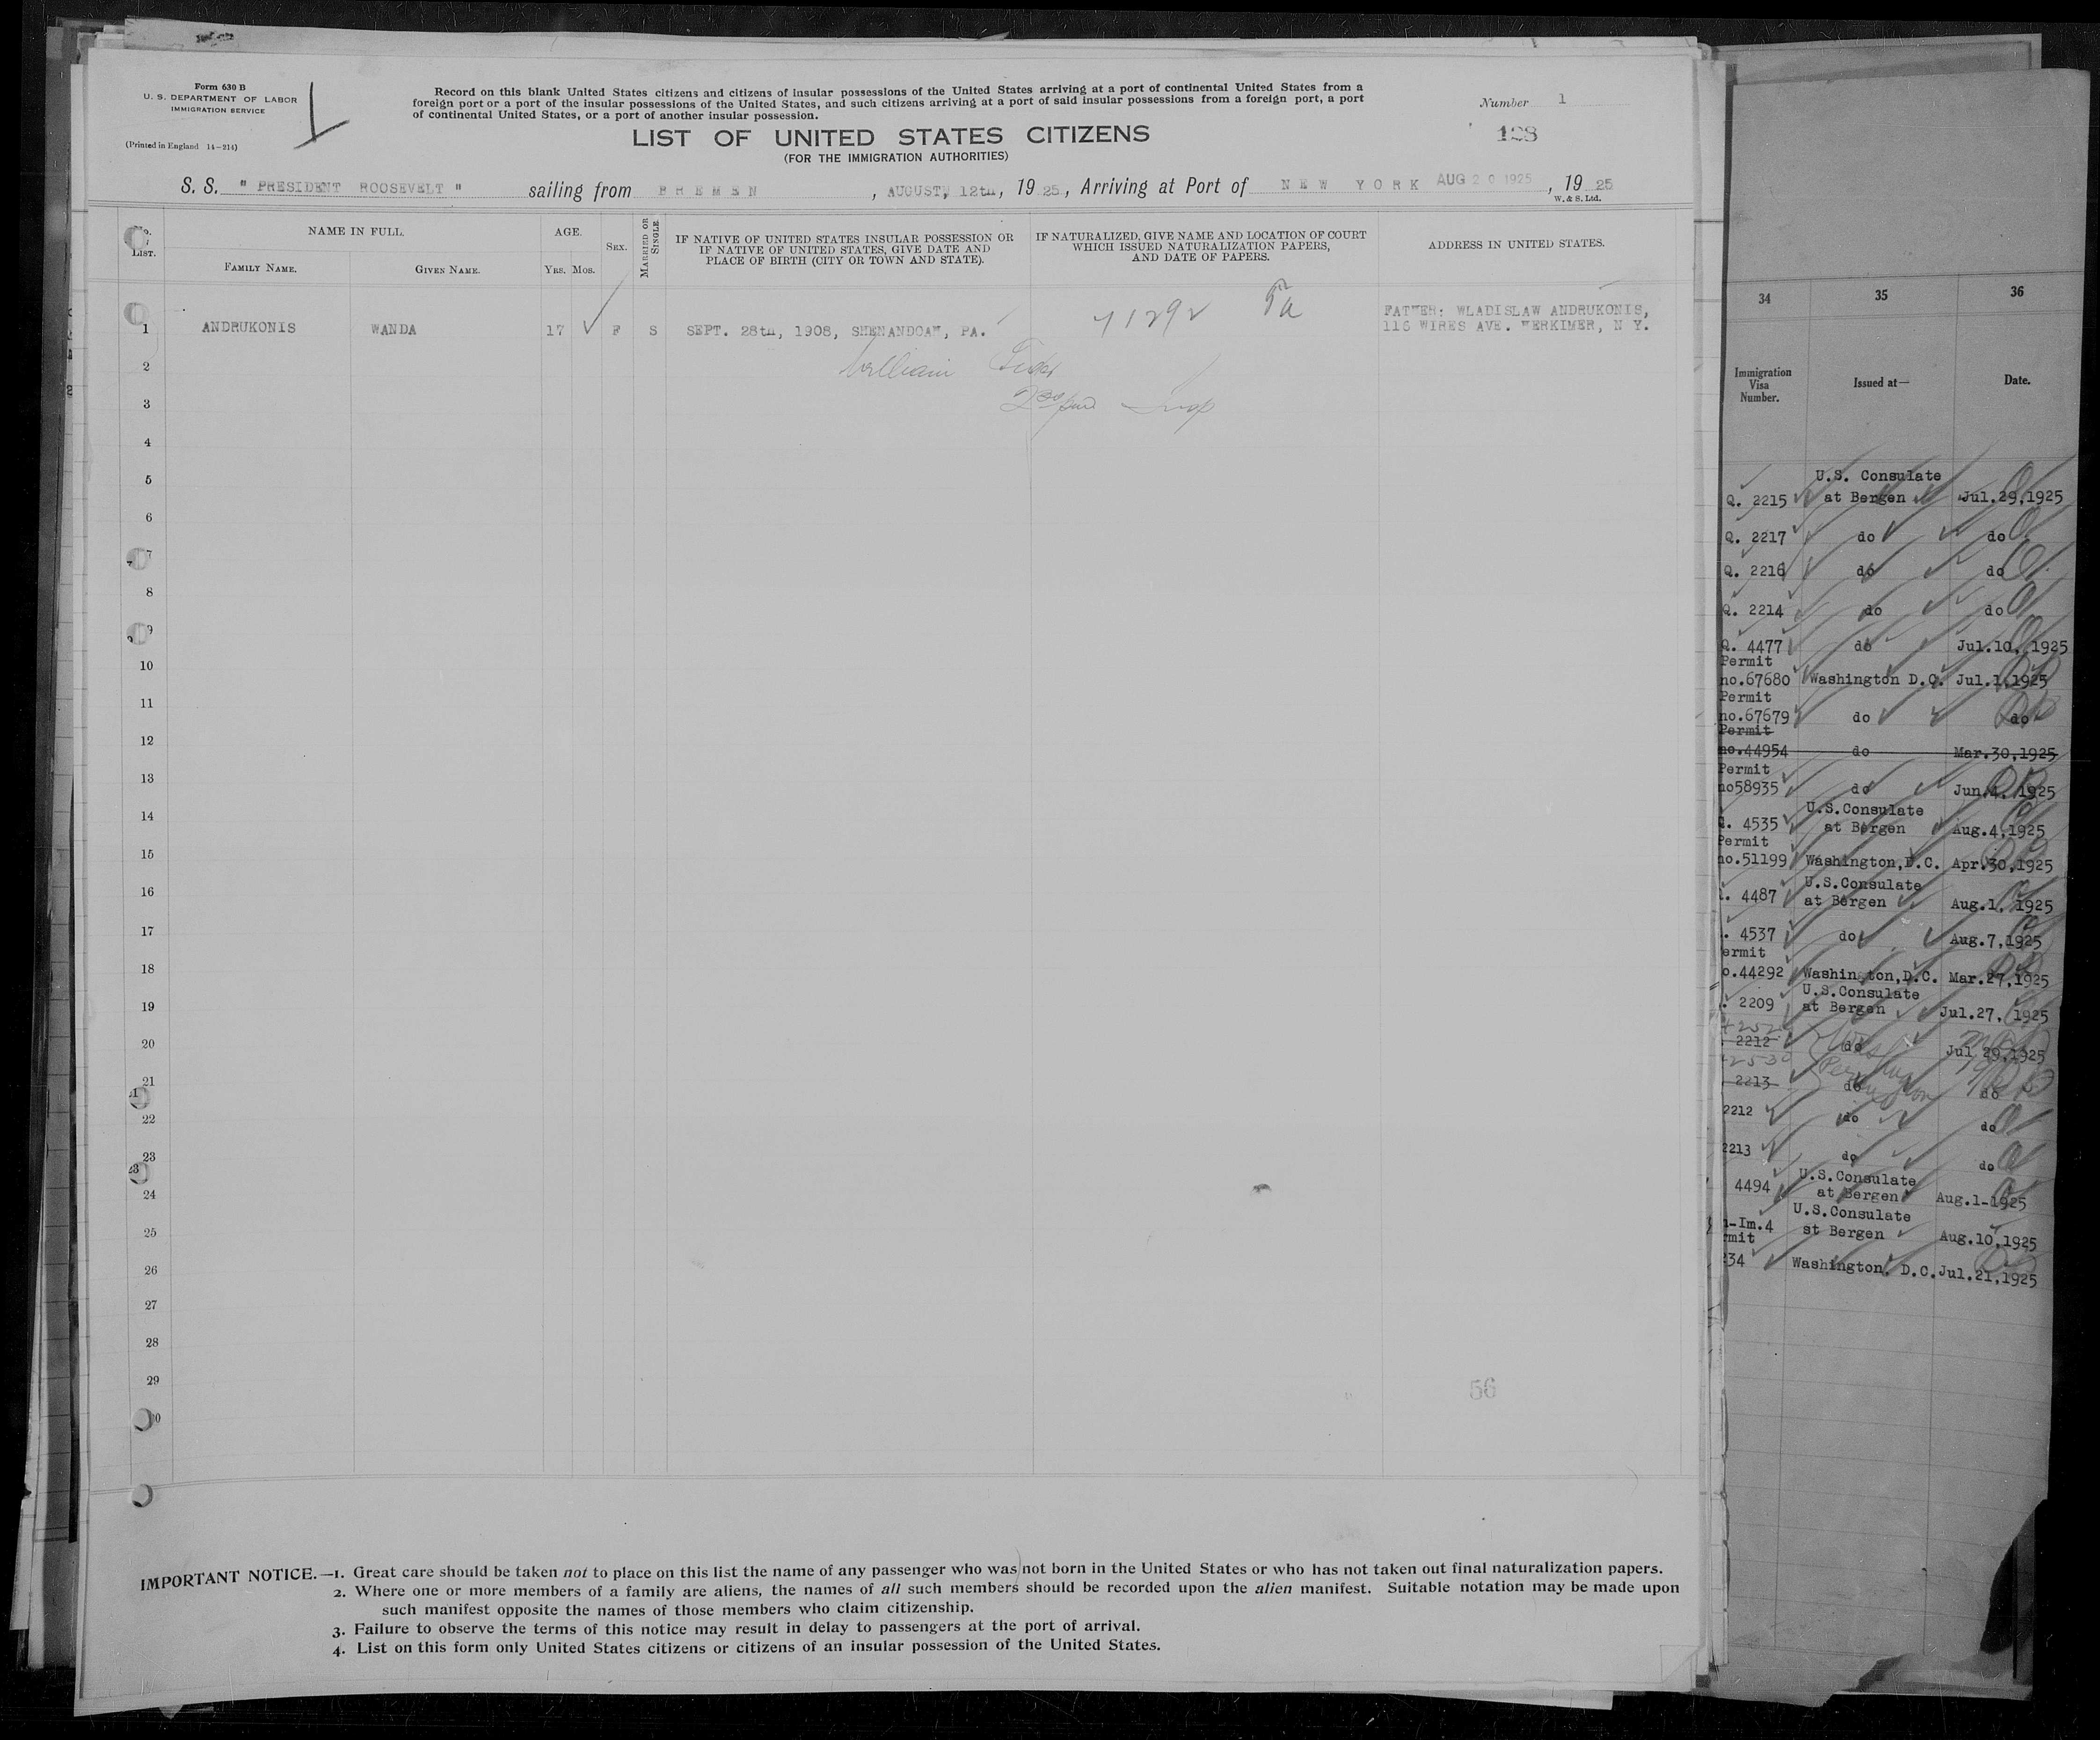 Form 630 B
U. S. DEPARTMENT OF LABOR
IMMIGRATION SERVICE
(Printed in England 14-214)
Record on this blank United States citizens and citizens of insular possessions of the United States arriving at a port of continental United States from a
foreign port or a port of the insular possessions of the United States, and such citizens arriving at a port of said insular possessions from a foreign port, a port
of continental United States, or a port of another insular possession.
Number 1
128
LIST OF UNITED STATES CITIZENS
(FOR THE IMMIGRATION AUTHORITIES)
S. S. " PRESIDENT ROOSEVELT " sailing from BREMEN, AUGUST, 12th, 1925, Arriving at Port of NEW YORK AUG 20 1925, 1925
W. & S. Ltd.
No. LIST.
NAME IN FULL.
FAMILY NAME.
GIVEN NAME.
AGE.
YRS. MOS.
SEX.
MARRIED OR SINGLE.
IF NATIVE OF UNITED STATES INSULAR POSSESSION OR
IF NATIVE OF UNITED STATES, GIVE DATE AND
PLACE OF BIRTH (CITY OR TOWN AND STATE).
IF NATURALIZED, GIVE NAME AND LOCATION OF COURT
WHICH ISSUED NATURALIZATION PAPERS,
AND DATE OF PAPERS.
ADDRESS IN UNITED STATES.
1 ANDRUKONIS WANDA 17 F S SEPT. 28th, 1908, SHENANDOAH, PA. 71292 Pa
FATHER: WLADISLAW ANDRUKONIS,
116 WIRES AVE. HERKIMER, N Y.
2 William
3 Insp
4
5
6
7
8
9
10
11
12
13
14
15
16
17
18
19
20
21
22
23
24
25
26
27
28
29
30
56
IMPORTANT NOTICE.—1. Great care should be taken not to place on this list the name of any passenger who was not born in the United States or who has not taken out final naturalization papers.
2. Where one or more members of a family are aliens, the names of all such members should be recorded upon the alien manifest. Suitable notation may be made upon
such manifest opposite the names of those members who claim citizenship.
3. Failure to observe the terms of this notice may result in delay to passengers at the port of arrival.
4. List on this form only United States citizens or citizens of an insular possession of the United States.
34 35 36
Immigration Visa Number. Issued at— Date.
U.S. Consulate
Q. 2215 at Bergen Jul.29,1925
Q. 2217 do do
Q. 2216 do do
Q. 2214 do do
Q. 4477 do Jul.10, 1925
Permit
no.67680 Washington D.C. Jul.1,1925
Permit
no.67679 do do
Permit
no.44954 do Mar.30,1925
Permit
no58935 do Jun.4, 1925
U.S.Consulate
Q. 4535 at Bergen Aug.4,1925
Permit
no.51199 Washington,D.C. Apr.30,1925
U.S.Consulate
. 4487 at Bergen Aug.1, 1925
. 4537 do Aug.7,1925
ermit
o.44292 Washington,D.C. Mar.27,1925
U.S.Consulate
. 2209 at Bergen Jul.27, 1925
2212 do Jul 29,1925
2213 do do
2212 do do
2213 do do
U.S.Consulate
4494 at Bergen Aug.1-1925
U.S.Consulate
n-Im.4 st Bergen Aug.10,1925
rmit
34 Washington, D.C. Jul.21,1925